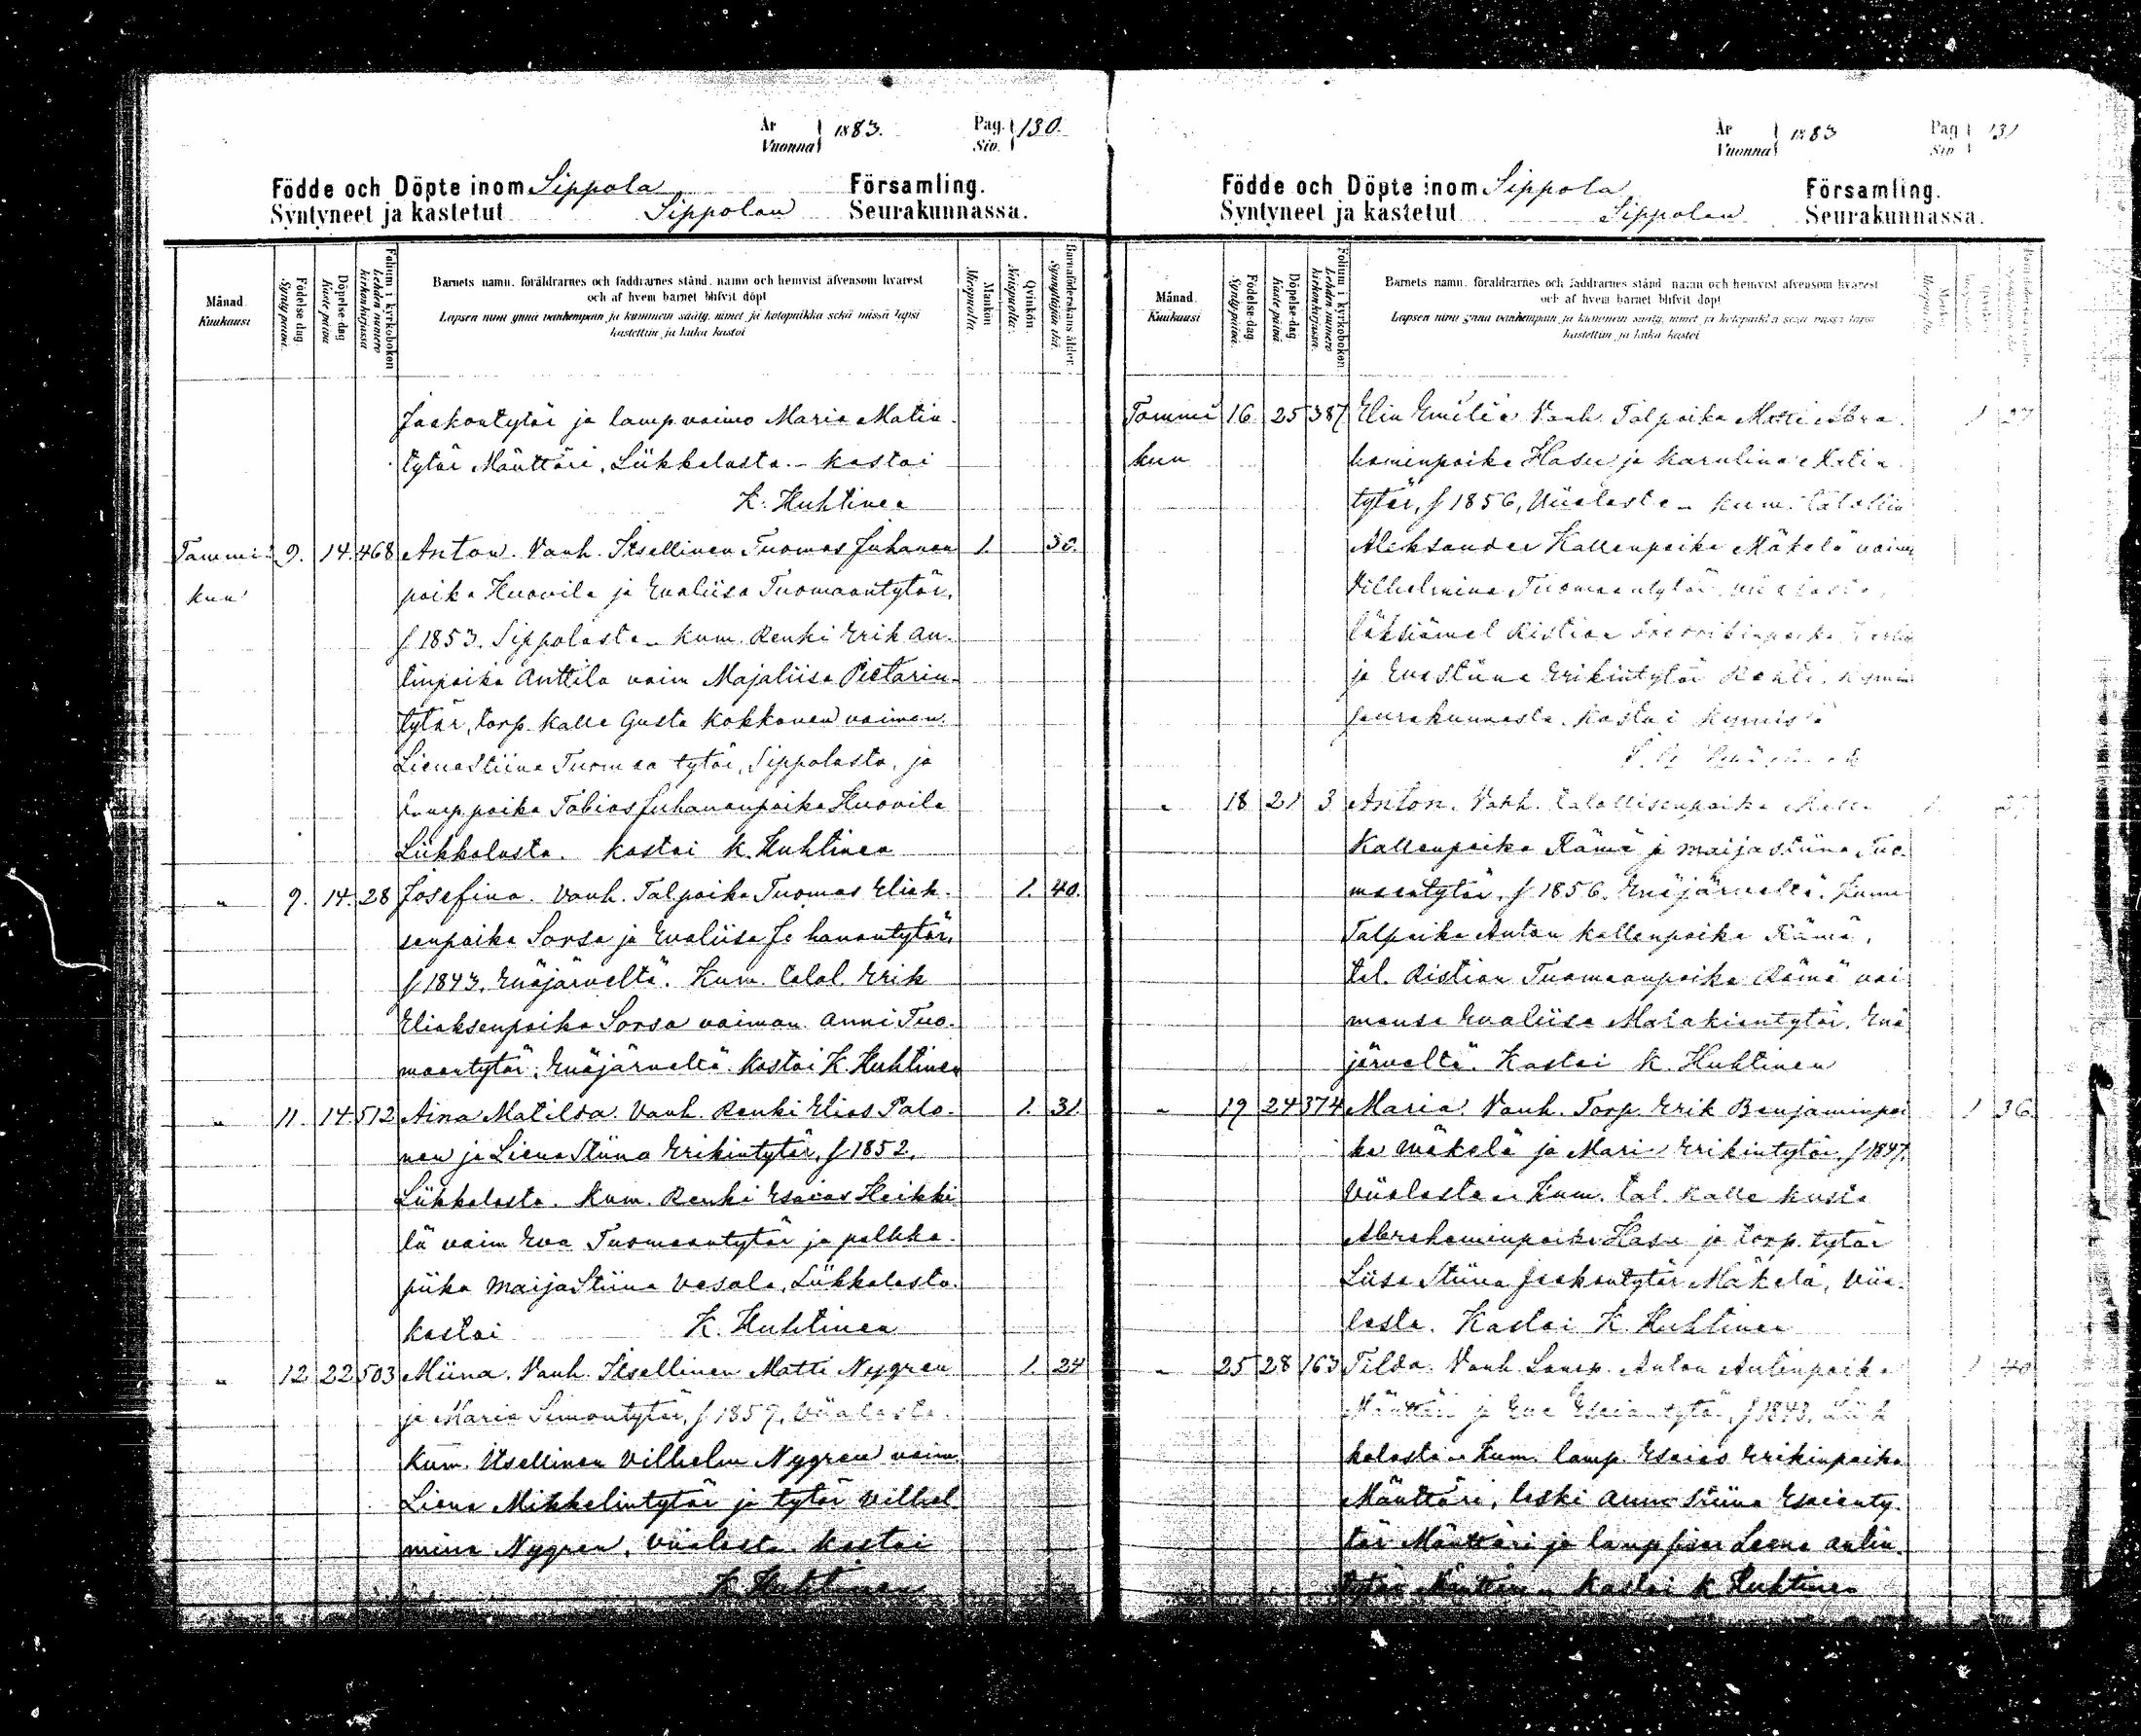 År Vuonna 1883. Pag. Siv. 130.
Födde och Döpte inom Sippola Församling.
Syntyneet ja kastetut Sippolan Seurakunnassa.
Månad. Kuukausi
Födelse dag. Synty päivä.
Döpelse dag Kaste päivä
Folium i kyrkoboken Lehden numero kirkonkirjassa
Barnets namn, föräldrarnes och faddrarnes stånd, namn och hemvist äfvensom hvarest
och af hvem barnet blifvit döpt
Lapsen nimi ynnä vanhempain ja kummein sääty, nimet ja kotopaikka sekä missä lapsi
kastettiin ja kuka kastoi
Mankön Miespuolta.
Qvinkön. Naispuolta.
Barnaföderskans ålder. Synnyttäjän ikä.
Jaakontytär ja lamp vaimo Maria Matin
tytär Mänttäri, Liikkalasta. – kastoi
K. Huhtinen
Tammi 9. 14. 468 Anton. Vanh. Itsellinen Tuomas Juhanan 1. 30.
kuu poika Huovila ja Evaliisa Tuomaantytär,
s 1853. Sippolasta – Kum. Renki Erik An-
tinpoika Anttila vaim Majaliisa Pietarin-
tytär, torp. Kalle Gusta Kokkonen vaimon
Lienastiina Tuomaa tytär, Sippolasta, ja
Lamp.poika Tobias Juhananpoika Huovila
Liikkalasta. Kastoi K. Huhtinen
" 9. 14. 28 Josefina. Vanh. Tal poika Tuomas Eliak- 1. 40.
senpoika Sorsa ja Evaliisa Johanantytär,
s 1843. Enäjärveltä. Kum. talol. Erik
Eliaksenpoika Sorsa vaimon Anni Tuo-
maantytär, Enäjärveltä. Kastoi K. Huhtinen
" 11. 14. 512 Aina Matilda. Vanh. Renki Elias Palo- 1. 31.
nen ja Liena Stiina Erikintytär, s 1852.
Liikkalasta. Kum. Renki Esaias Heikki
lä vaim Eva Tuomaantytär ja palkka-
piika Maija Stiina Vesala, Liikkalasta.
kastoi K. Huhtinen
" 12 22 503 Miina. Vanh. Itsellinen Matti Nygren 1. 24
ja Maria Simontytär, s 1859, Viialasta.
Kum. Itsellinen Vilhelm Nygren vaim.
Liena Mikkelintytär ja tytär Vilhel
mina Nygren, Viialasta. kastoi
K. Huhtinen
År Vuonna 1883 Pag Siv 131
Födde och Döpte inom Sippola Församling.
Syntyneet ja kastetut Sippolan Seurakunnassa.
Månad. Kuukausi
Födelse-dag. Synty päivä.
Döpelse-dag Kaste päivä
Folium i kyrkoboken Lehden numero kirkonkirjassa.
Barnets namn, föräldrarnes och faddrarnes stånd namn och hemvist äfvensom hvarest
och af hvem barnet blifvit döpt
Lapsen nimi ynnä vanhempain ja kummein sääty, nimet ja kotopaikka sekä missä lapsi
kastettiin ja kuka kastoi
Tammi 16 25 387 Elin Emilia Vanh. Talpoika Matti Abra 1 27
kuu haminpoika Hasu ja Karulina Matin
tytär, s 1856, Viialasta – Kum. talollin
Aleksander Kallenpoika Mäkelä vaim
Vilhelmina Tuomaantytär
Ristian
ja Evastiina Erikintytär Kymin
seurakunnasta. Kastoi Kymissä
" 18 21 3 Anton. Vanh. talollisenpoika Kalle 1
Kallenpoika Rämä ja Maijastiina Tuo-
maantytär, s 1856. Enäjärveltä. Kum
Talpoika Anton Kallenpoika Rämä,
tal. Ristian Tuomaanpoika Rämä vai
monsa Evaliisa Malakiantytär, Enä
järveltä. Kastoi K. Huhtinen
" 19 24 374 Maria. Vanh. Torp. Erik Benjaminpoi 1 36
ka Mäkelä ja Mari Erikintytär, s 1847.
Viialasta – Kum. tal. Kalle Kusta
Abrahaminpoika Hasu ja torp. tytär
Liisa Stiina Jaakontytär Mäkelä, Viia-
lasta. Kastoi K. Huhtinen
" 25 28 163 Tilda. Vanh Lamp. Anton Antinpoika 1 40
Mänttäri ja Eva Esaiantytär, s 1843, Liik
kalasta – Kum. lamp. Esaias Erikinpoika
Mänttäri, leski Anna Stiina Esaianty-
tär Mänttäri ja Leena Antin
tytär Mänttäri – Kastoi K Huhtinen